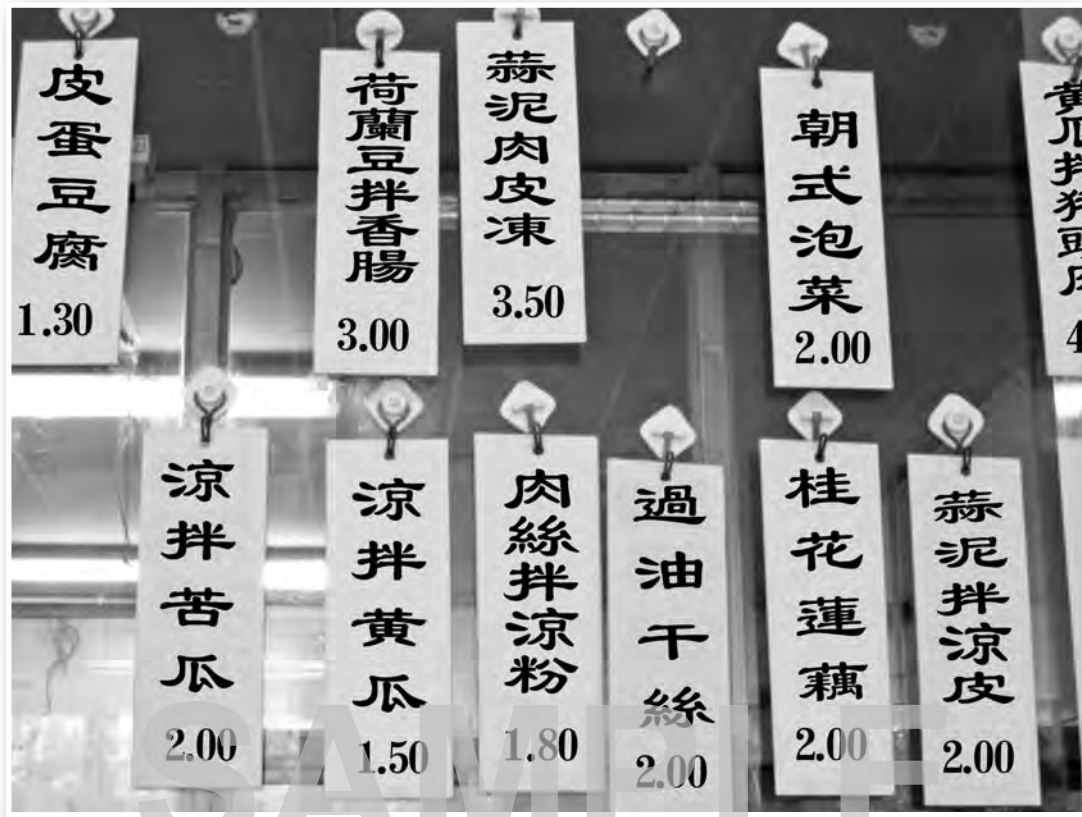 皮蛋豆腐
1.30
荷蘭豆拌香腸
3.00
蒜泥肉皮凍
3.50
朝式泡菜
2.00
黃瓜拌豬頭肉
4
涼拌苦瓜
2.00
涼拌黃瓜
1.50
肉絲拌涼粉
1.80
過油干絲
2.00
桂花蓮藕
2.00
蒜泥拌涼皮
2.00
SAMPLE